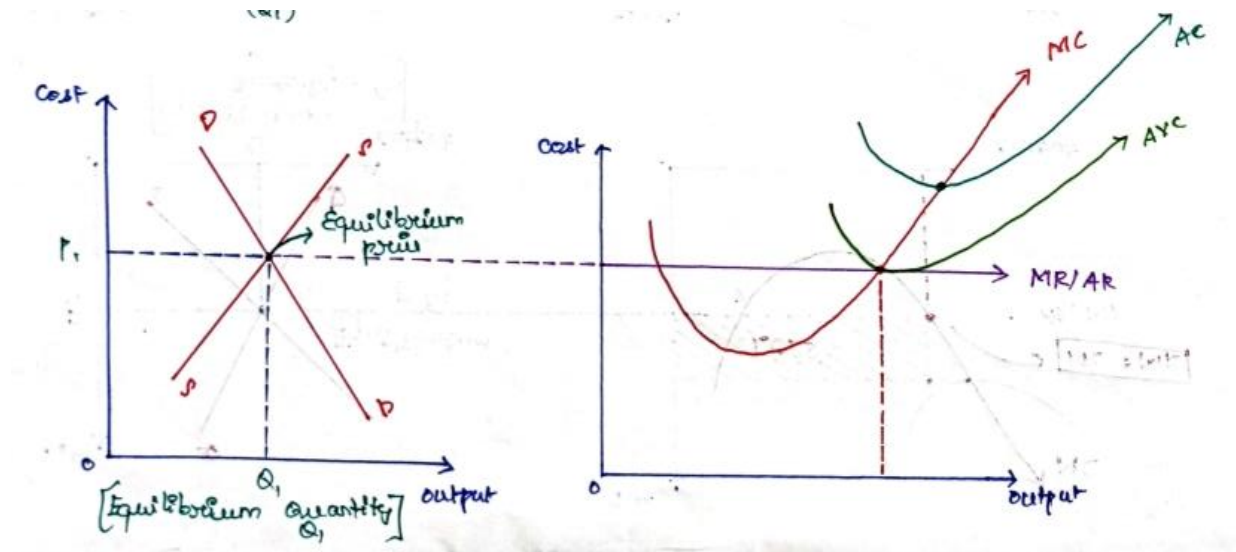 (Q1)
Cost
D
S
Equilibrium
price
P1
S
D
0
Q1
output
[Equilibrium Quantity]
Q1
Cost
MC
AC
AVC
MR/AR
0
output